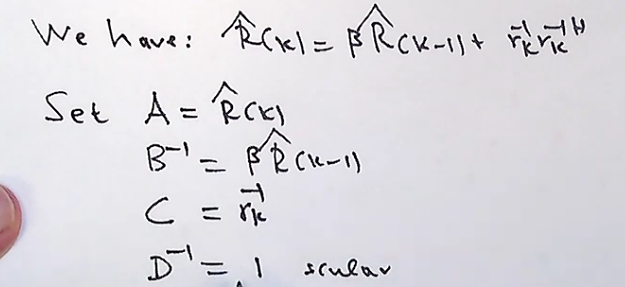 We have: R̂(k) = βR̂(k-1) + r⃗ₖr⃗ₖᴴ
Set A = R̂(k)
B⁻¹ = βR̂(k-1)
C = r⃗ₖ
D⁻¹ = 1 scular